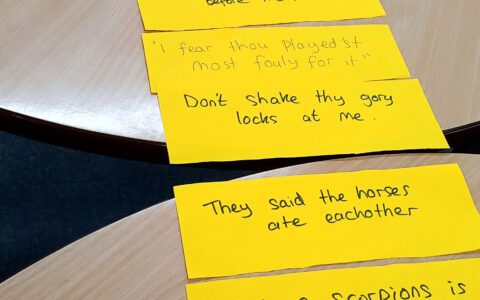 before me
"I fear thou played'st
most fouly for it"
Don't shake thy gory
locks at me.
They said the horses
ate eachother
Scorpions is